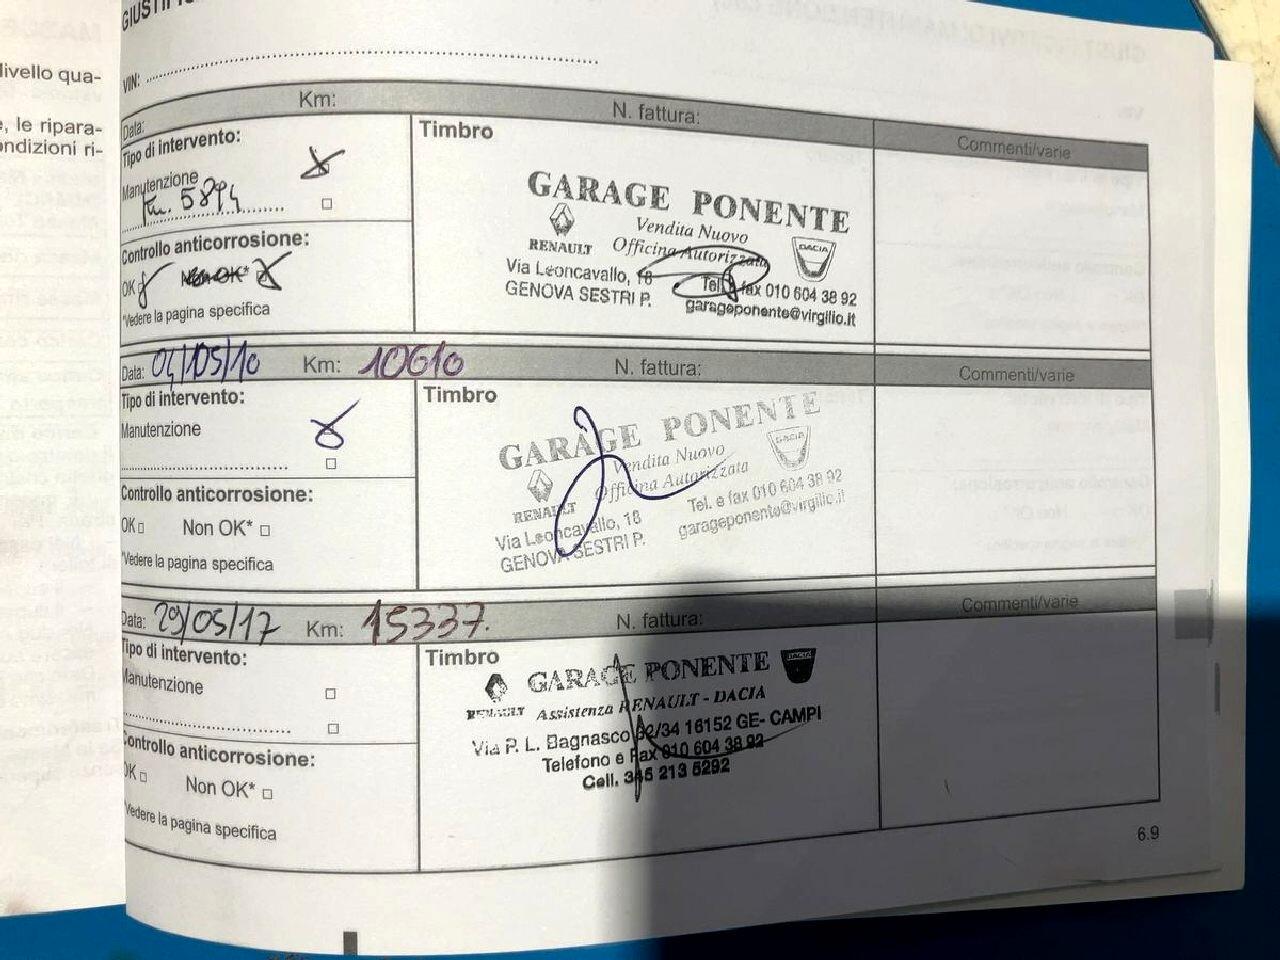 livello qua-
, le ripara-
ondizioni ri-
VIN:
Data: Km: N. fattura: Commenti/varie
Tipo di intervento:
Manutenzione
Km. 5894
Controllo anticorrosione:
OK Non OK*
*Vedere la pagina specifica
Timbro
GARAGE PONENTE
Vendita Nuovo
RENAULT Officina Autorizzata DACIA
Via Leoncavallo, 18
GENOVA SESTRI P.
Tel. e fax 010 604 38 92
garageponente@virgilio.it
Data: 04/05/10 Km: 10610 N. fattura: Commenti/varie
Tipo di intervento:
Manutenzione
Controllo anticorrosione:
OK Non OK*
*Vedere la pagina specifica
Timbro
GARAGE PONENTE
Vendita Nuovo
Officina Autorizzata DACIA
RENAULT
Via Leoncavallo, 18
GENOVA SESTRI P.
Tel. e fax 010 604 38 92
garageponente@virgilio.it
Data: 29/05/17 Km: 15337. N. fattura: Commenti/varie
Tipo di intervento:
Manutenzione
Controllo anticorrosione:
OK Non OK*
*Vedere la pagina specifica
Timbro
GARAGE PONENTE DACIA
RENAULT Assistenza RENAULT - DACIA
Via P. L. Bagnasco 32/34 16152 GE- CAMPI
Telefono e Fax 010 604 38 92
Cell. 345 213 5292
6.9